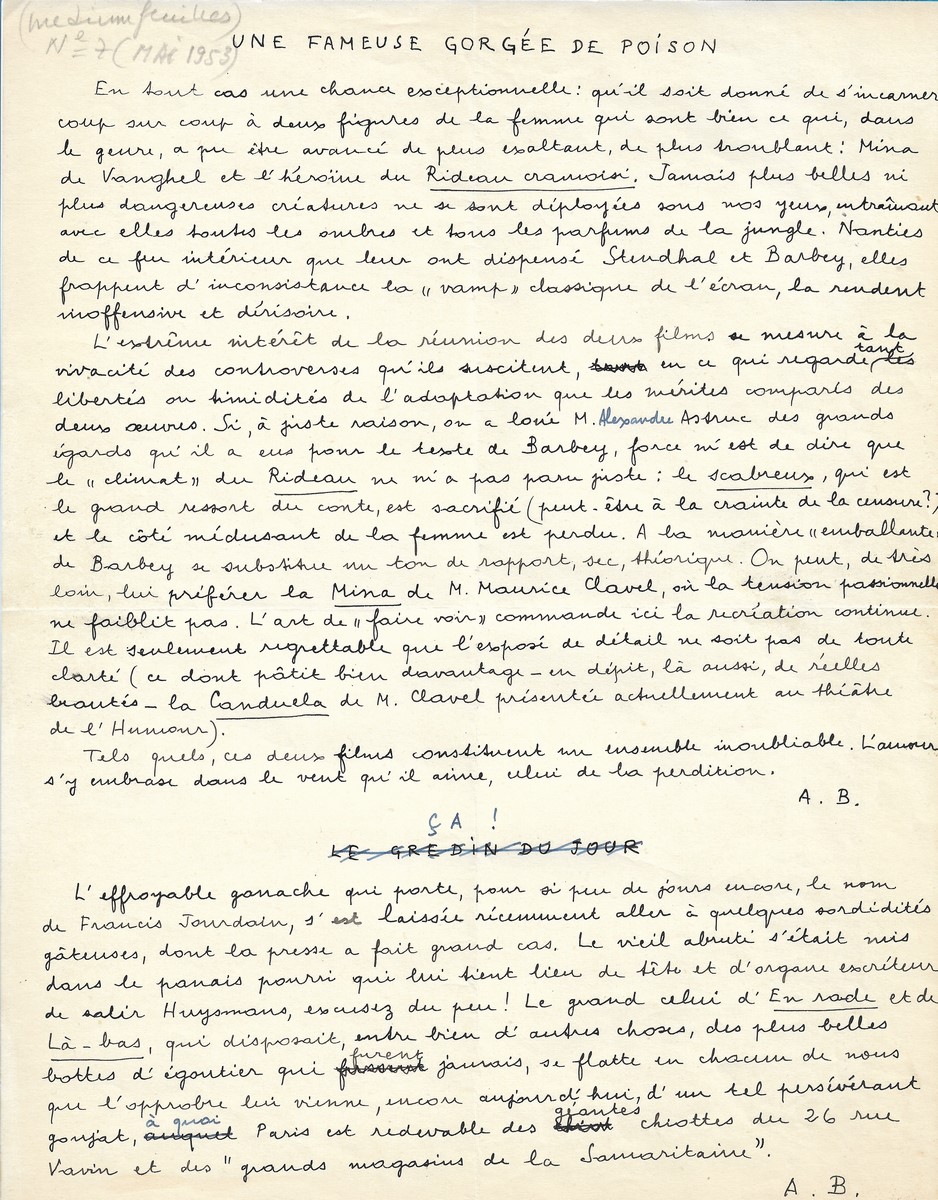 (medium feuilles)
Nº 7 (MAI 1953)
UNE FAMEUSE GORGÉE DE POISON
En tout cas une chance exceptionnelle : qu'il soit donné de s'incarner
coup sur coup à deux figures de la femme qui sont bien ce qui, dans
le genre, a pu être avancé de plus exaltant, de plus troublant : Mina
de Vanghel et l'héroïne du Rideau cramoisi. Jamais plus belles ni
plus dangereuses créatures ne se sont déployées sous nos yeux, entraînant
avec elles toutes les ombres et tous les parfums de la jungle. Nanties
de ce feu intérieur que leur ont dispensé Stendhal et Barbey, elles
frappent d'inconsistance la « vamp » classique de l'écran, la rendent
inoffensive et dérisoire.
L'extrême intérêt de la réunion des deux films se mesure à la
vivacité des controverses qu'ils suscitent, tant en ce qui regarde tant les
libertés ou timidités de l'adaptation que les mérites comparés des
deux œuvres. Si, à juste raison, on a loué M. Alexandre Astruc des grands
égards qu'il a eus pour le texte de Barbey, force m'est de dire que
le « climat » du Rideau ne m'a pas paru juste : le scabreux, qui est
le grand ressort du conte, est sacrifié (peut-être à la crainte de la censure?)
et le côté médusant de la femme est perdu. A la manière « emballante »
de Barbey se substitue un ton de rapport, sec, théorique. On peut, de très
loin, lui préférer la Mina de M. Maurice Clavel, où la tension passionnelle
ne faiblit pas. L'art de « faire voir » commande ici la recréation continue.
Il est seulement regrettable que l'exposé de détail ne soit pas de toute
clarté (ce dont pâtit bien davantage – en dépit, là aussi, de réelles
beautés – la Canduela de M. Clavel présentée actuellement au théâtre
de l'Humour).
Tels quels, ces deux films constituent un ensemble inoubliable. L'amour
s'y embrase dans le vent qu'il aime, celui de la perdition.
A. B.
ÇA !
LE GREDIN DU JOUR
L'effroyable ganache qui porte, pour si peu de jours encore, le nom
de Francis Jourdain, s'est laissée récemment aller à quelques sordidités
gâteuses, dont la presse a fait grand cas. Le vieil abruti s'était mis
dans le panais pourri qui lui tient lieu de tête et d'organe excréteur
de salir Huysmans, excusez du peu ! Le grand celui d'En rade et de
Là-bas, qui disposait, entre bien d'autres choses, des plus belles
bottes d'égoutier qui furent jamais, se flatte en chacun de nous
que l'opprobre lui vienne, encore aujourd'hui, d'un tel persévérant
goujat, auquel à quoi Paris est redevable des géantes chiottes du 26 rue
Vavin et des "grands magasins de la Samaritaine".
A. B.